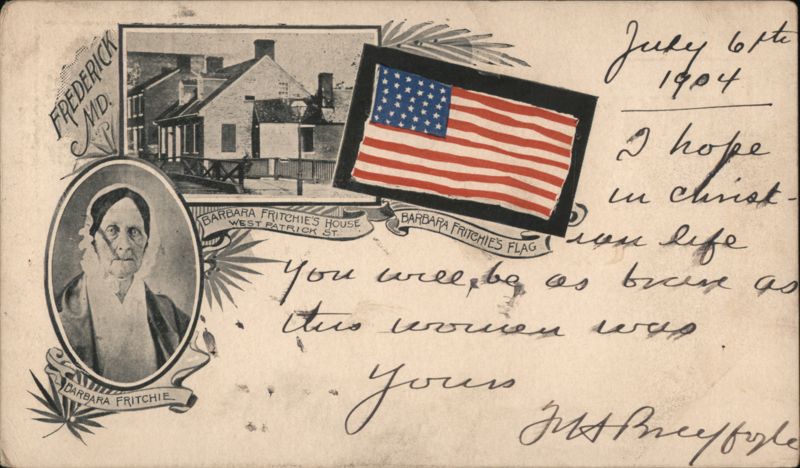 FREDERICK
MD.
BARBARA FRITCHIE'S HOUSE
WEST PATRICK ST.
BARBARA FRITCHIE'S FLAG
BARBARA FRITCHIE
July 6th
1904
I hope
in christ-
ian life
you will be as brave as
this women was
Yours